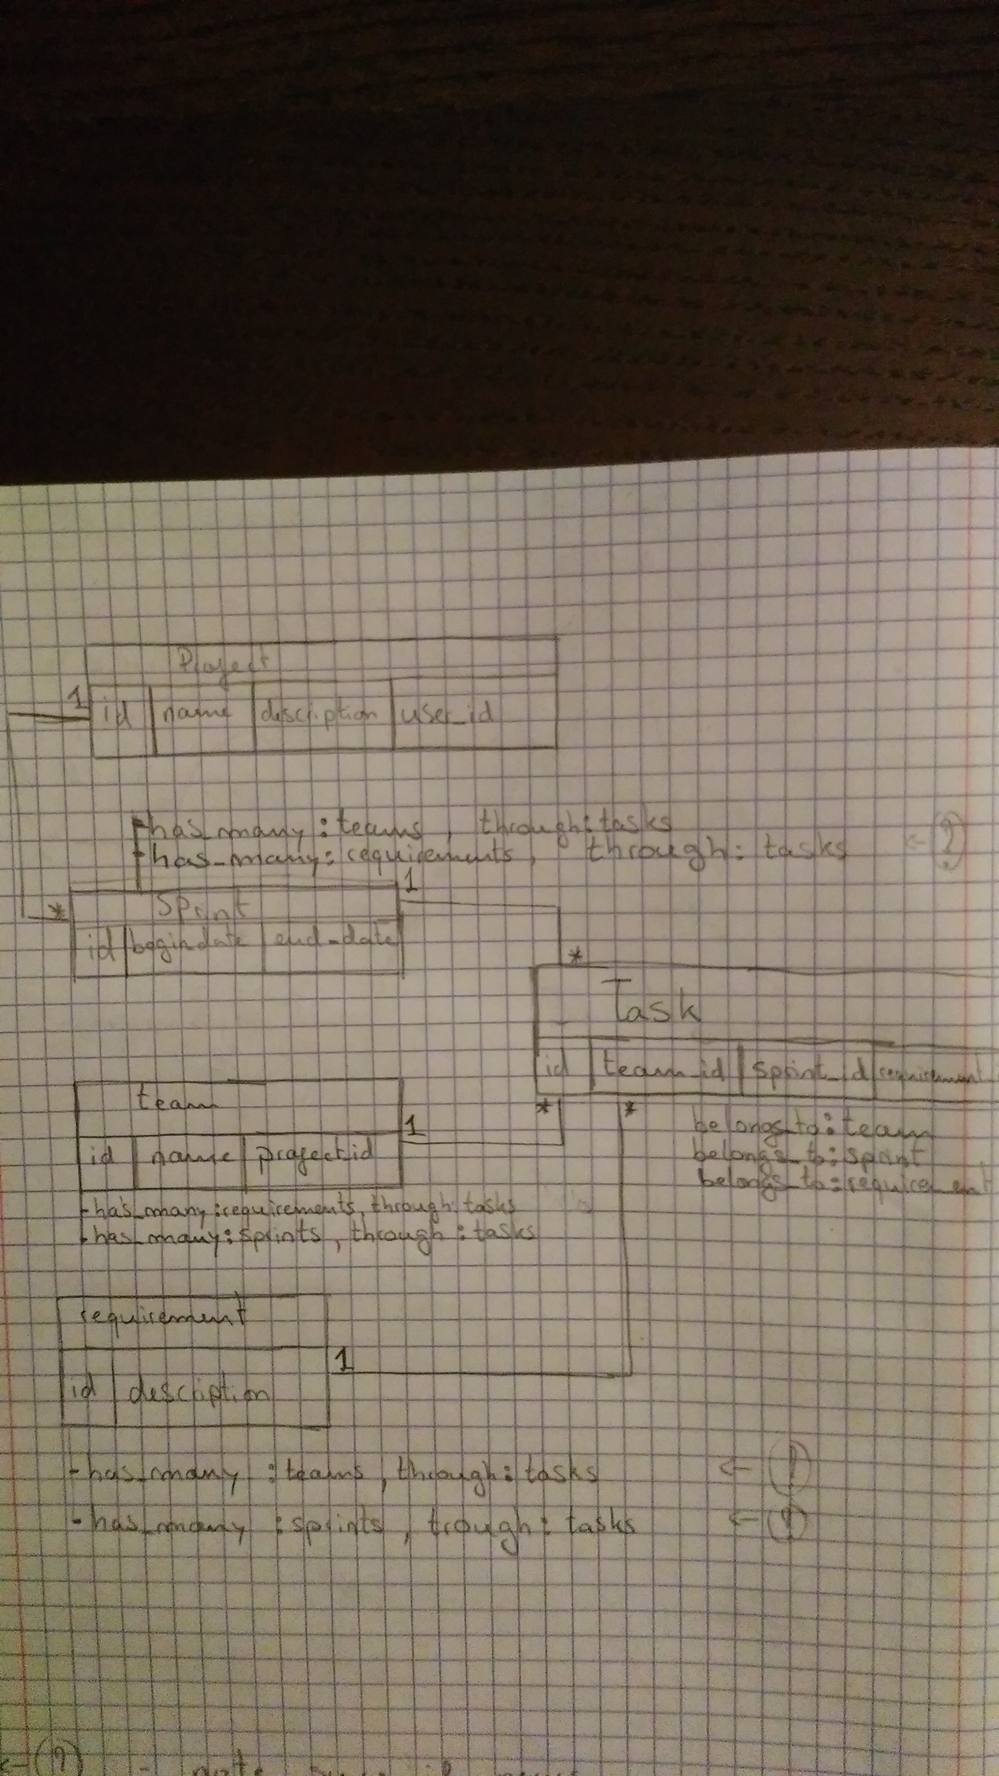 Project
1
id name description user_id
+has_many:teams, through:tasks
+has_many:requirements, through: tasks ← ?
1
* Sprint
id begindate end_date
*
Task
id team_id sprint_id requirement
* *
belongs_to:team
belongs_to:sprint
belongs_to:requirement
team
1
id name project_id
-has_many:requirements, through:tasks
-has_many:sprints, through:tasks
requirement
1
id description
-has_many :teams, through:tasks ← ?
-has_many :sprints, trough:tasks ← ?
← ? -